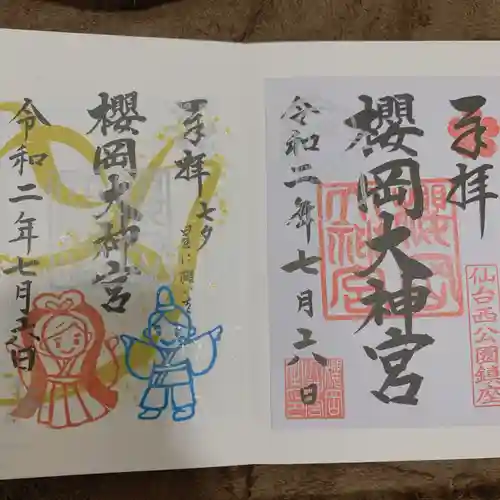 奉拝
櫻岡大神宮
仙台西公園鎮座
令和二年七月二六日
奉拝
七夕
星に願いを
櫻岡大神宮
令和二年七月二六日